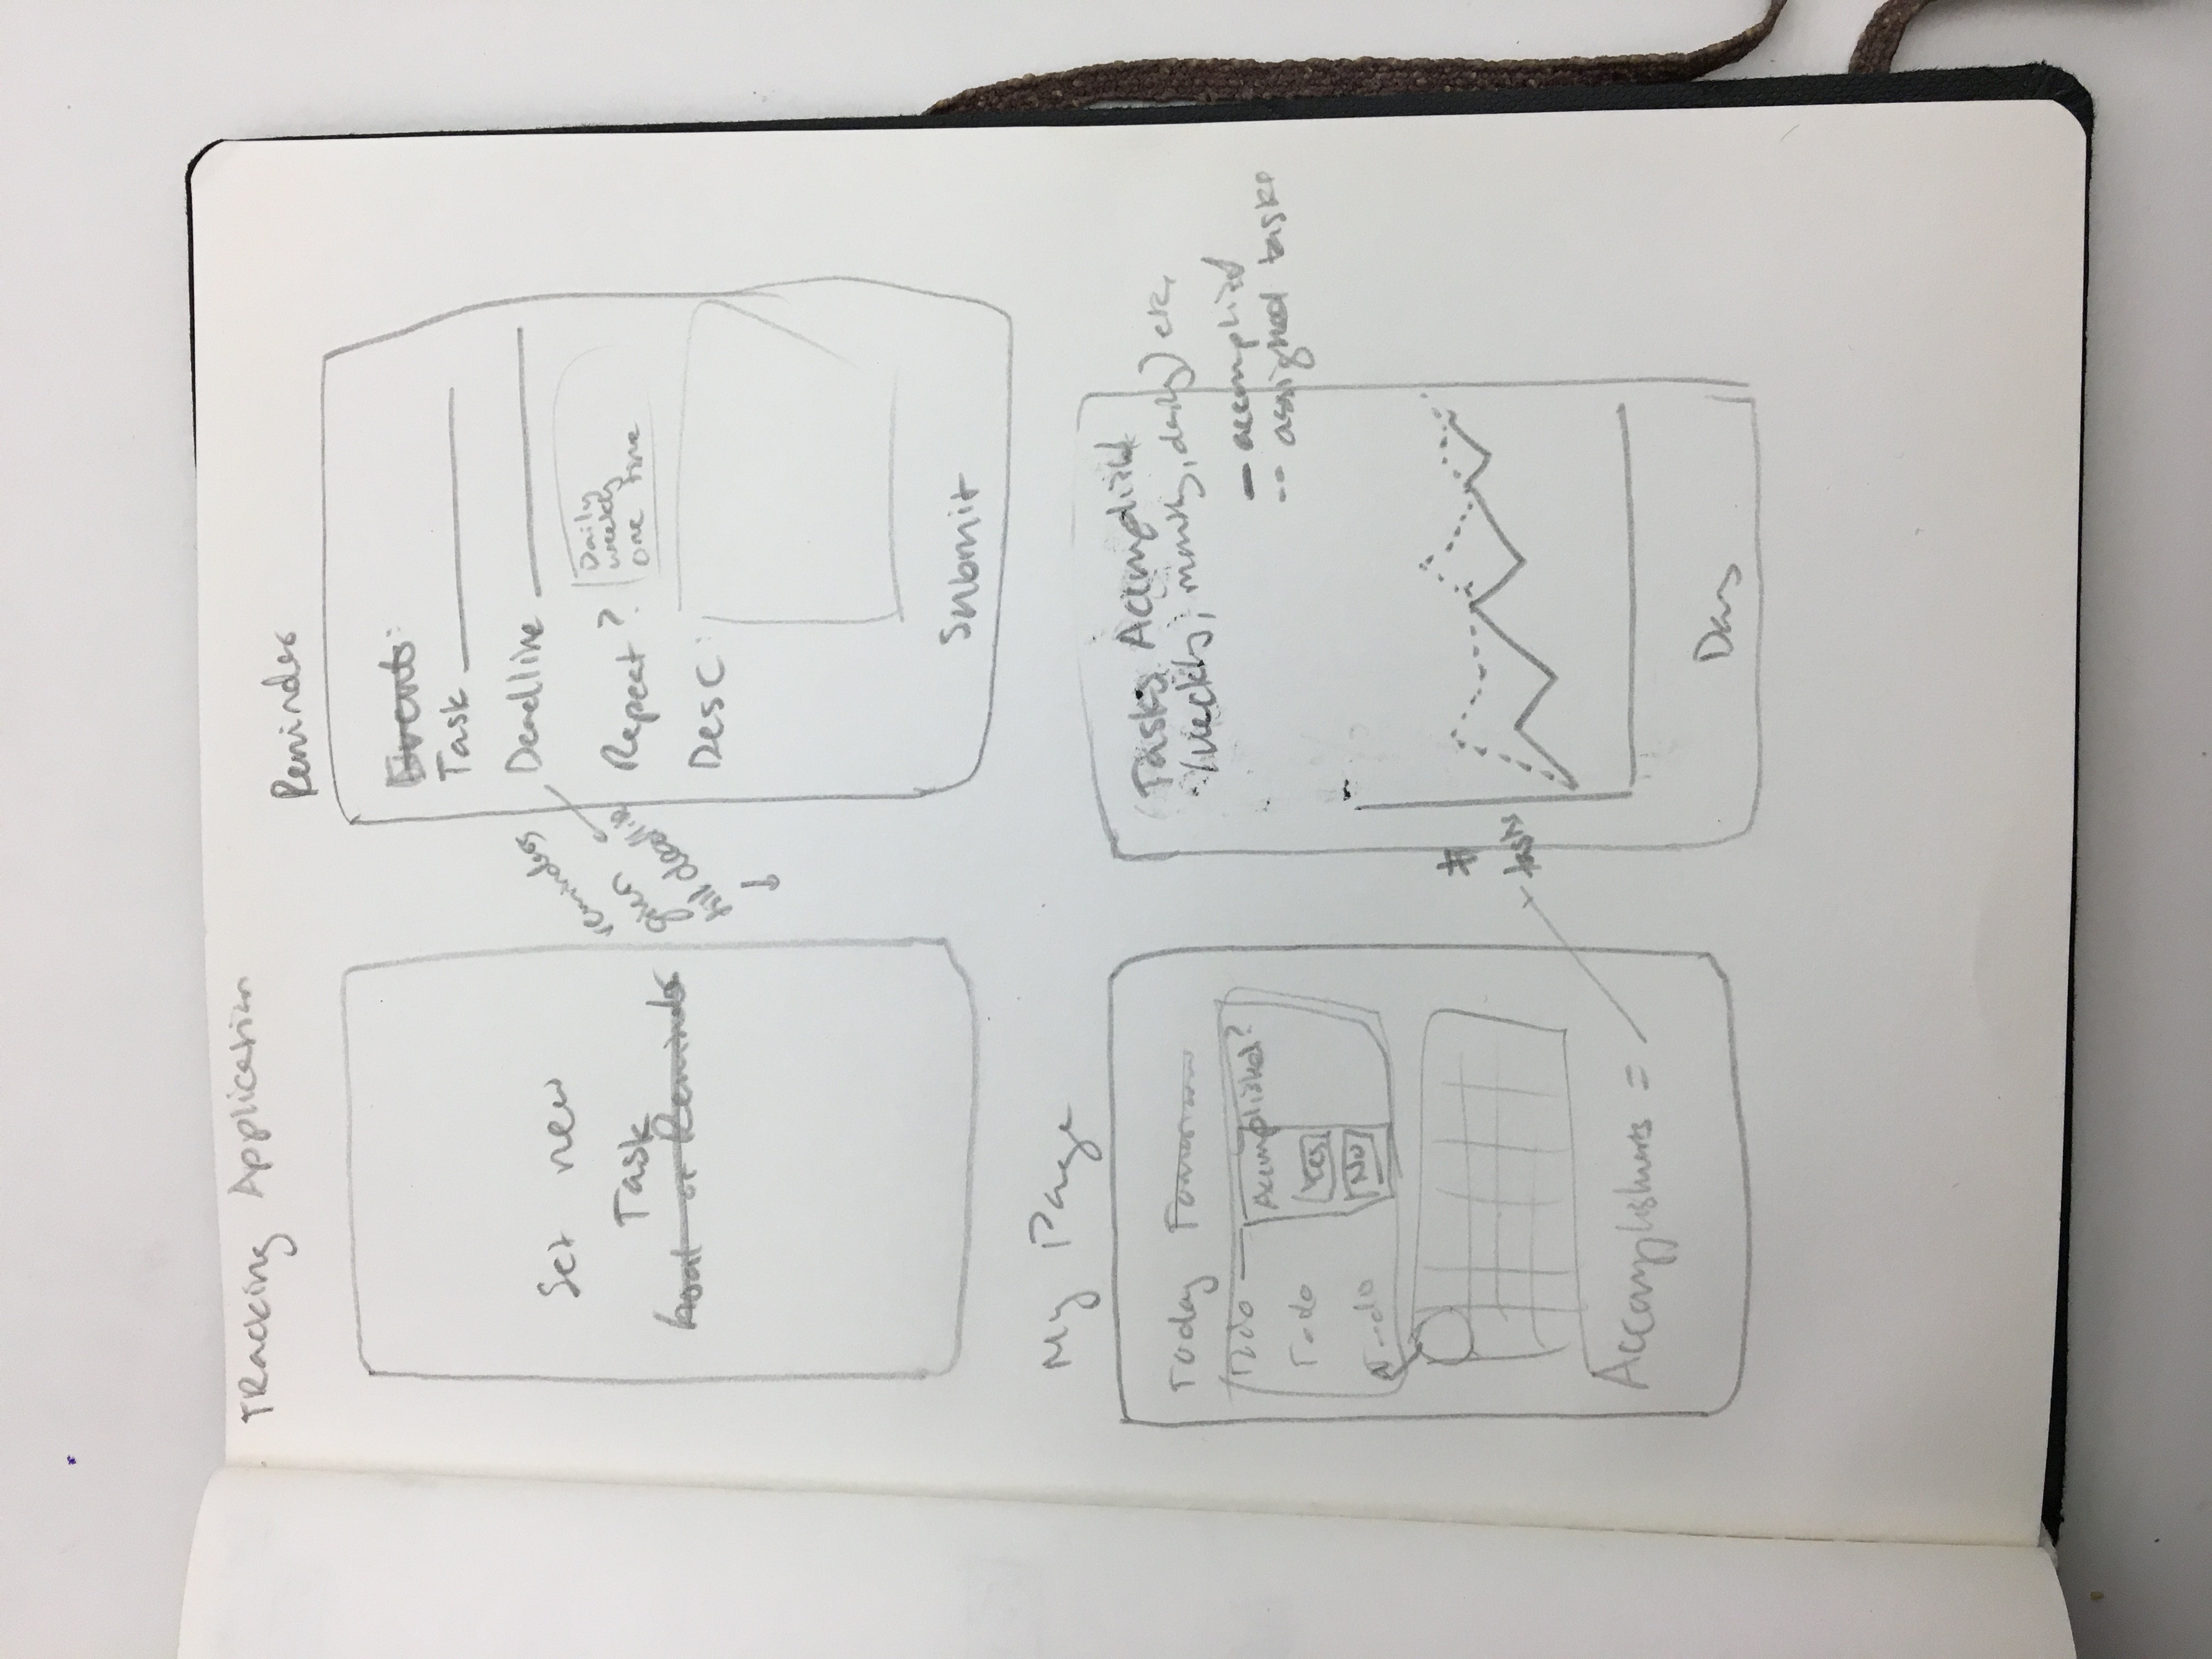 TRacking Application
Set new
Task
Goal or Reminder
Reminder
Events:
Task
Deadline
Repeat?
Daily
weekly
one time
Desc:
Submit
reminders
given
till deadline
My Page
Today Tomorrow
To do
To-do
To-do
Accomplished?
Yes
No
Accomplishments =
Tasks Accomplished
(weekly, monthly, daily) etc,
accomplished
assigned tasks
#
tasks
Days